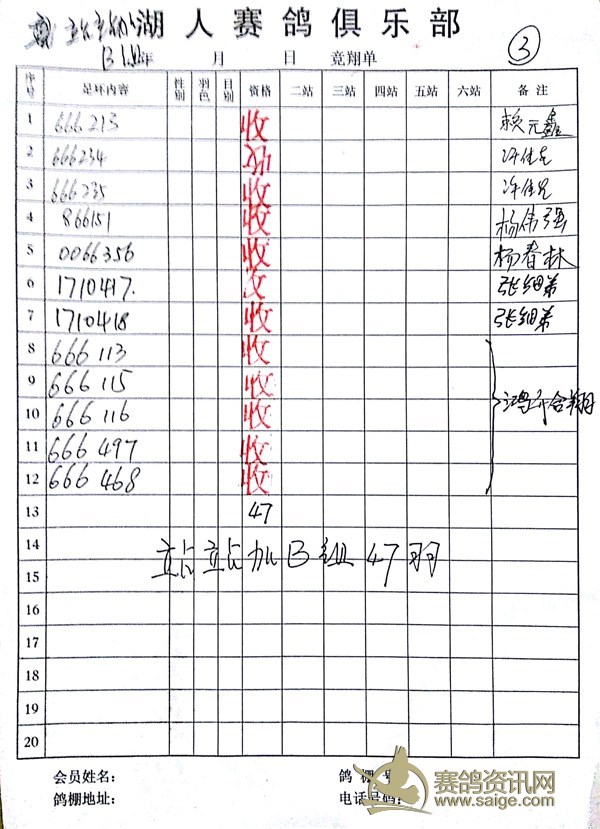 站站加 湖人赛鸽俱乐部
B组 年 月 日 竞翔单 ③
序号 足环内容 性别 羽色 目别 资格 二站 三站 四站 五站 六站 备注
1 666213 收 赖元鑫
2 666234 收
3 666235 收
4 866151 收 杨伟强
5 0066356 收 杨春林
6 1710417. 收 张细弟
7 1710418 收 张细弟
8 666 113 收
9 666 115 收
10 666 116 收
11 666 497 收
12 666 468 收
13 47
14 站站加B组47羽
15
16
17
18
19
20
会员姓名: 鸽棚号
鸽棚地址: 电话号码:
赛鸽资讯网
www.saige.com